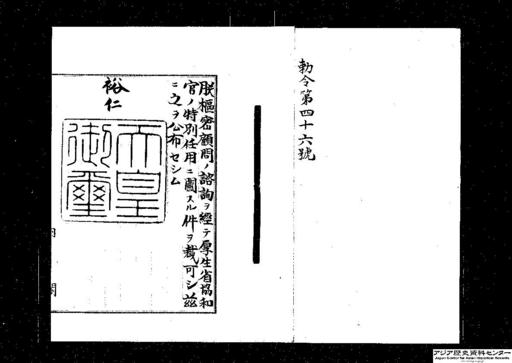 勅令第四十六號
朕樞密顧問ノ諮詢ヲ經テ厚生省協和
官ノ特別任用ニ關スル件ヲ裁可シ茲
ニ之ヲ公布セシム
裕仁
天皇
御璽
内閣
アジア歴史資料センター
Japan Center for Asian Historical Records